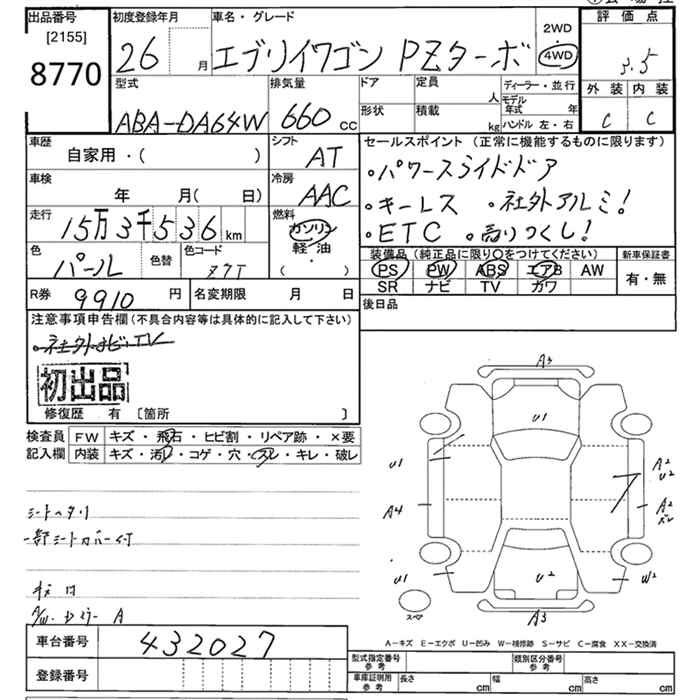 出品番号
[2155]
8770
初度登録年月
26 月
車名・グレード
エブリイワゴン PZターボ
2WD
4WD
評価点
3.5
外装 内装
C C
型式
ABA-DA64W
排気量
660 cc
ドア
定員
人
形状
積載
kg
ディーラー・並行
モデル年式 年
ハンドル 左・右
車歴
自家用・( )
シフト
AT
車検
年 月( 日)
冷房
AAC
走行
15万3千536 km
燃料
ガソリン
軽油
( )
色
パール
色替
色コード
R券
9910 円
名変期限 月 日
セールスポイント (正常に機能するものに限ります)
・パワースライドドア
・キーレス ・社外アルミ!
・ETC ・売りつくし!
装備品(純正品に限り○をつけてください)
PS PW ABS エアB AW
SR ナビ TV カワ
新車保証書
有・無
後日品
注意事項申告欄(不具合内容等は具体的に記入して下さい)
・社外ナビ・TV
初出品
修復歴 有 [箇所 ]
検査員
記入欄
FW キズ・飛石・ヒビ割・リペア跡・×要
内装 キズ・汚レ・コゲ・穴・スレ・キレ・破レ
シートヘタリ
一部シートカバー付
A
車台番号
432027
登録番号
A3
U1
U1
A2
U2
A4
A2
U1
U2
W2
スペア
A3
A-キズ E-エクボ U-凹み W-補修跡 S-サビ C-腐食 XX-交換済
型式指定番号
参考
類別区分番号
参考
車庫証明用
参考
長さ cm
幅 cm
高さ cm